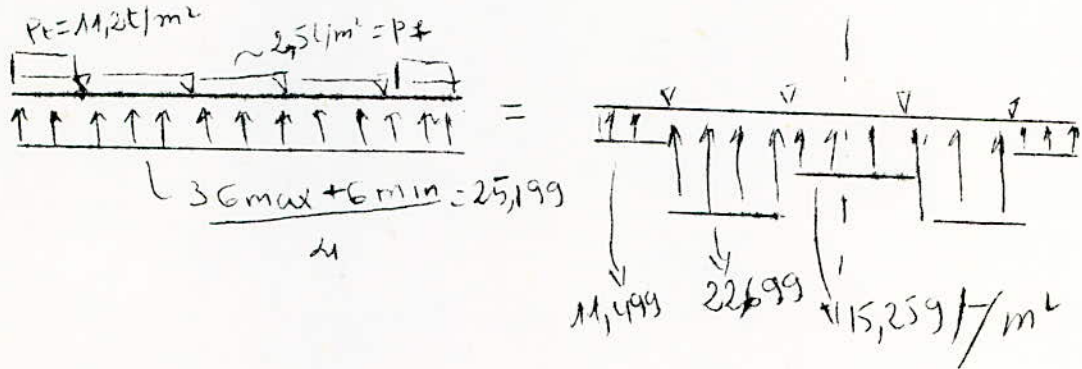 Pt=11,2t/m²
~2,5t/m²=P
=
3σmax+σmin = 25,199
4
11,499
22,699
15,259 t/m²